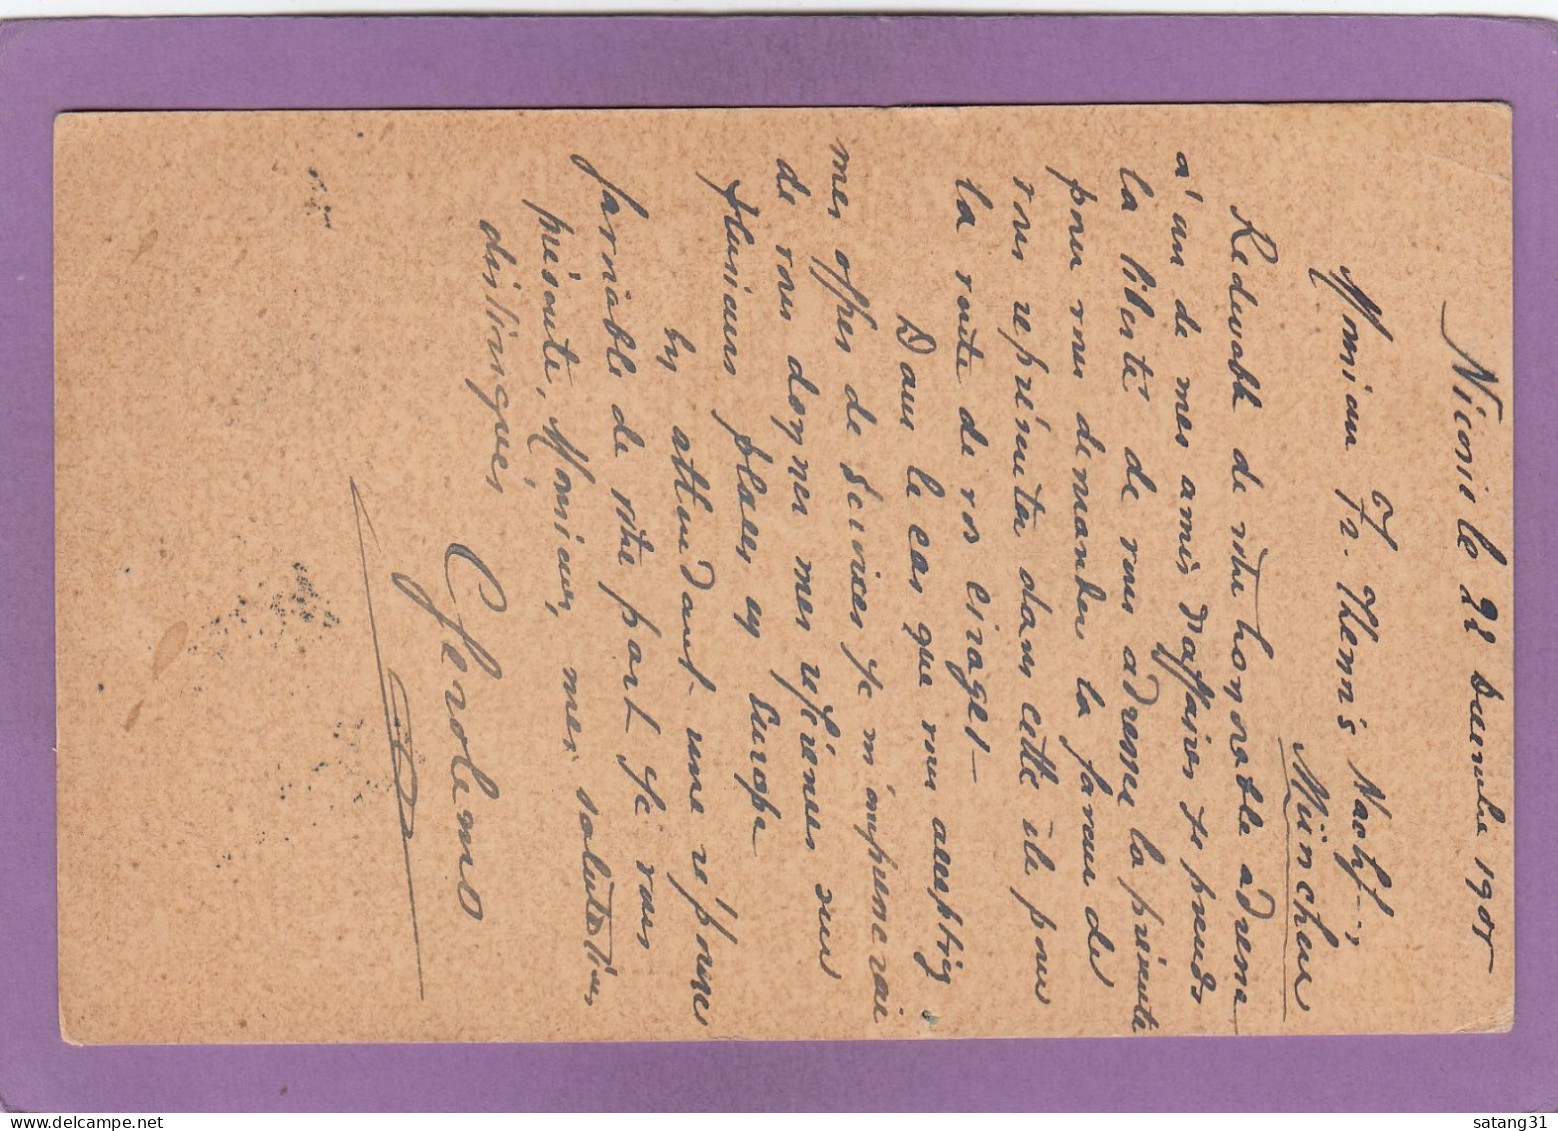 Nicosie le 22 Decembre 1905
Monsieur Fr. Thenn's Nachf.,
München
Redevable de votre honorable adresse
à un de mes amis d'affaires je prends
la liberté de vous adresser la présente
pour vous demander la faveur de
vous représenter dans cette île pour
la vente de vos cirages —
Dans le cas que vous acceptiez
mes offres de services je m'empresserai
de vous donner mes références sur
plusieurs places en Europe
En attendant une réponse
favorable de votre part je vous
présente, Monsieur, mes salutations
distinguées
satang31